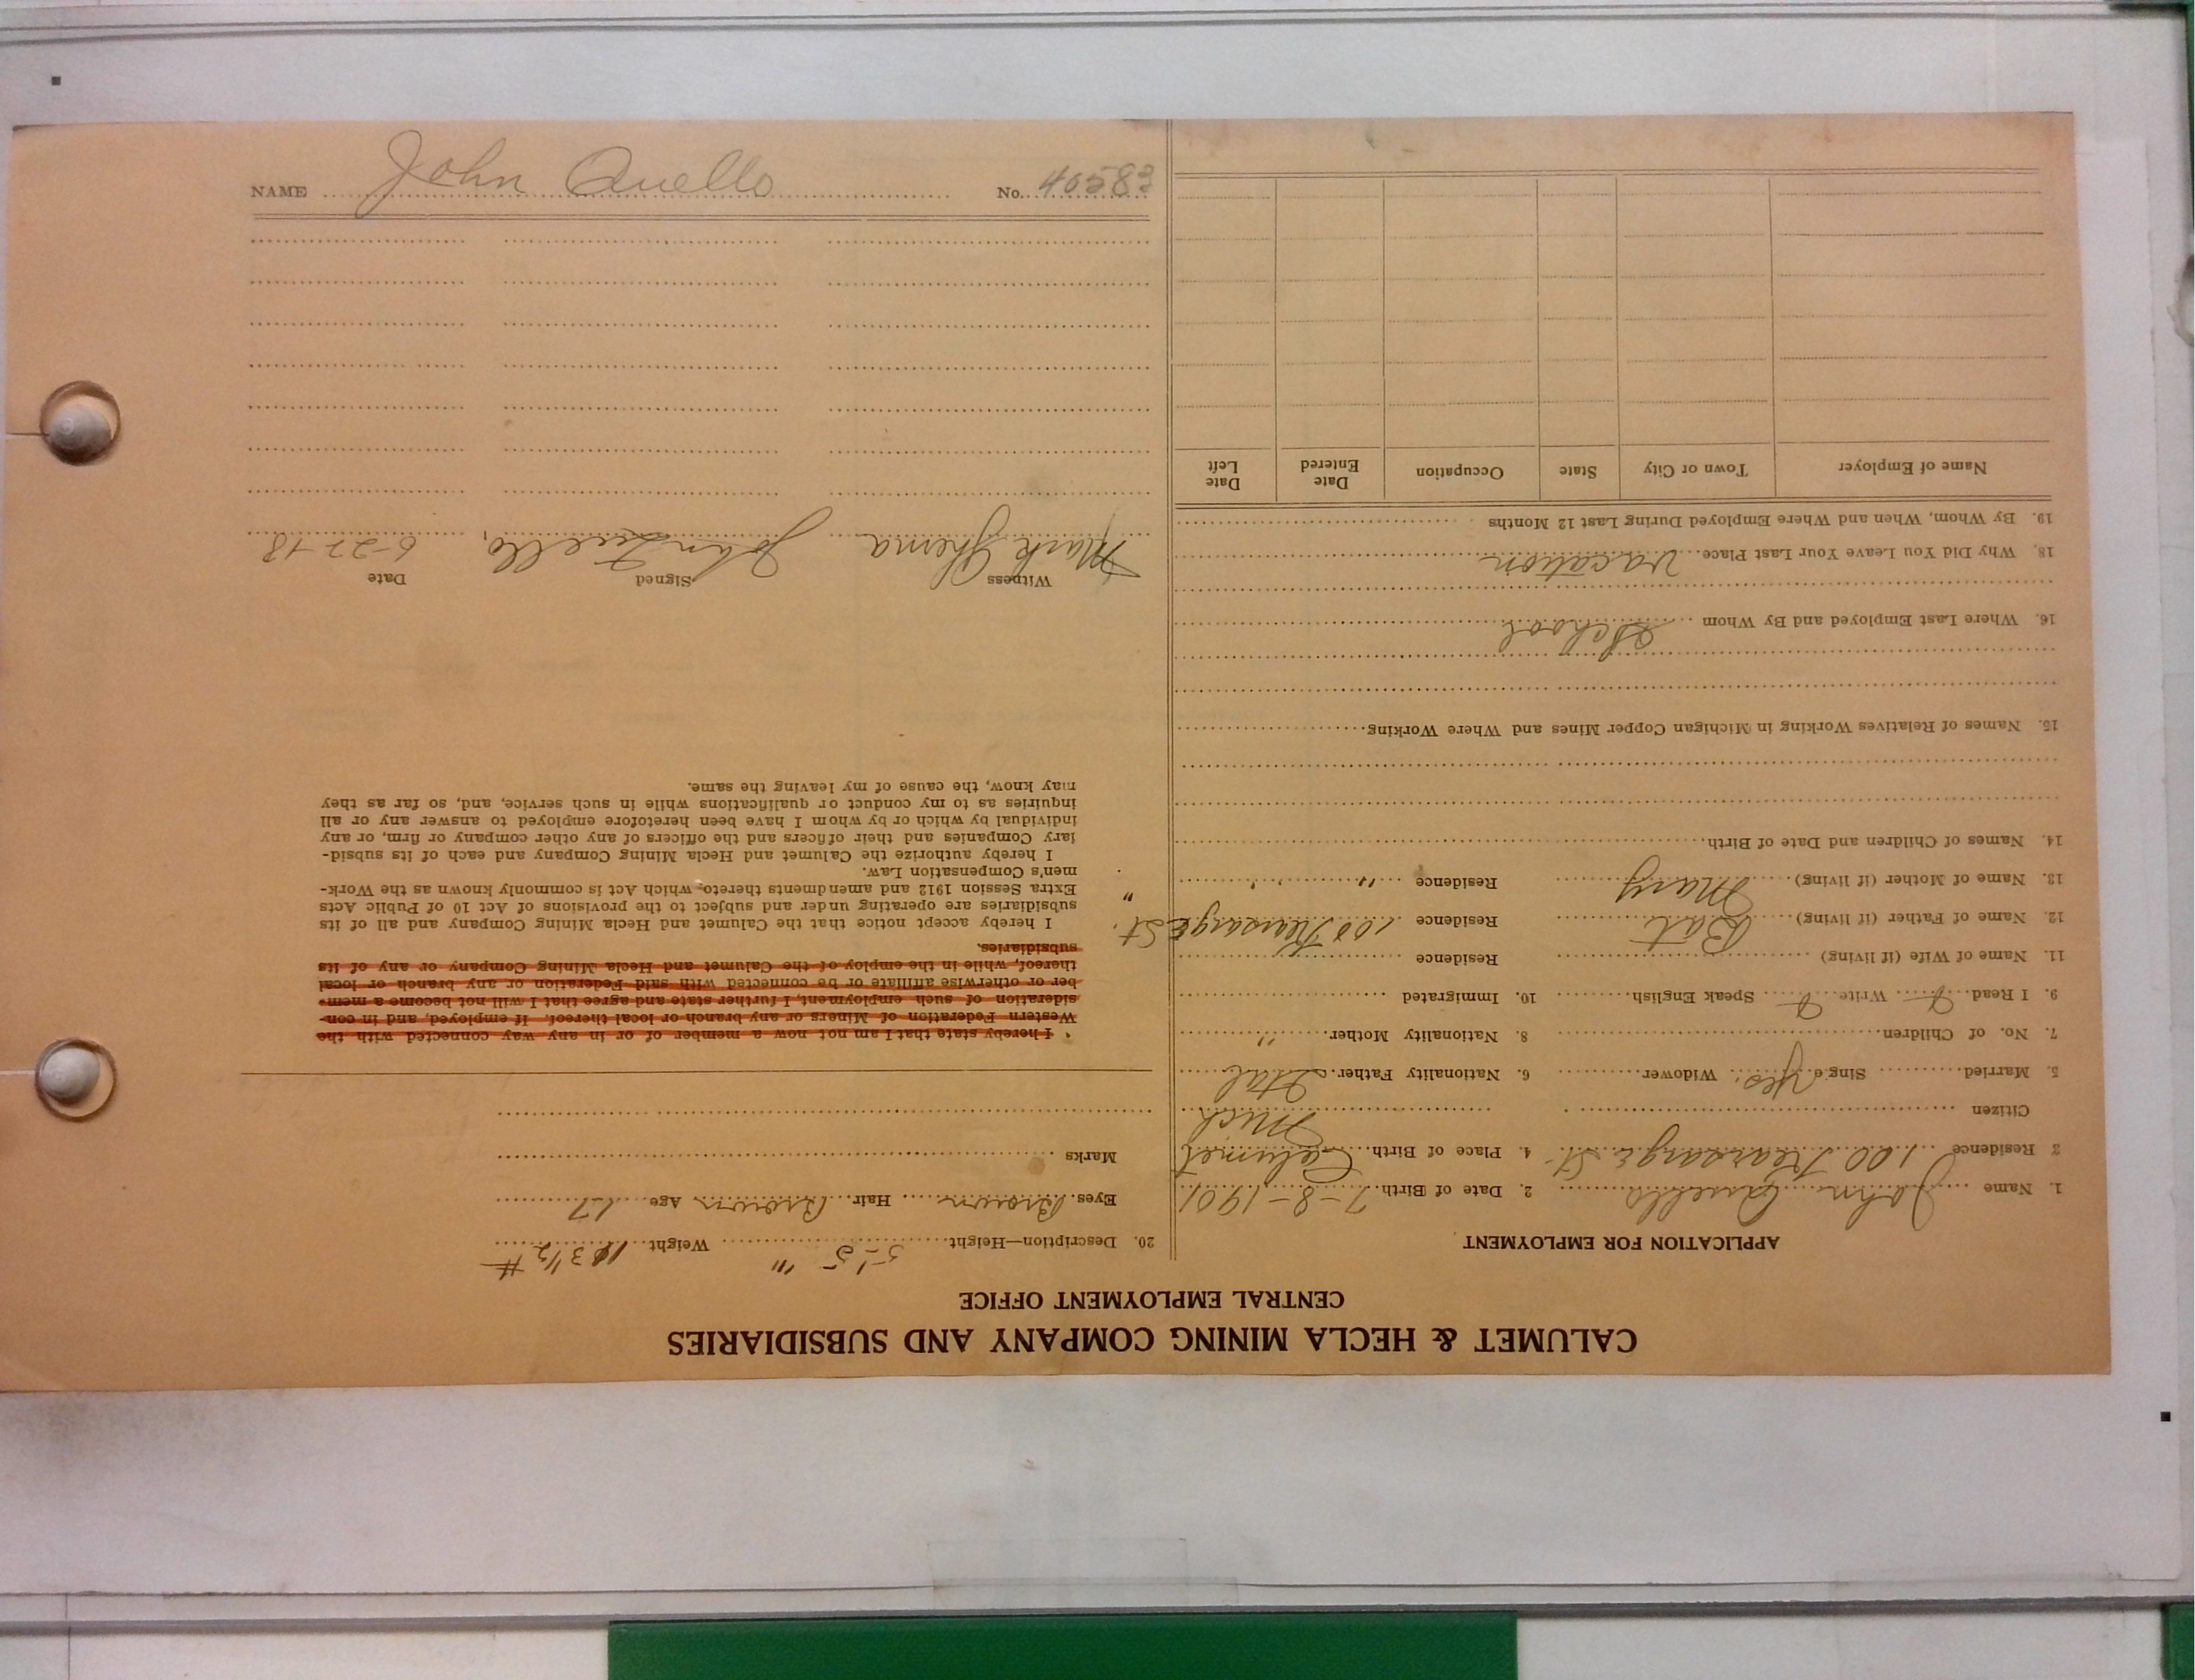 NAME John Quello No. 40583
CALUMET & HECLA MINING COMPANY AND SUBSIDIARIES
CENTRAL EMPLOYMENT OFFICE
APPLICATION FOR EMPLOYMENT
1. Name John Quello 2. Date of Birth 7-8-1901
3 Residence 100 Kearsarge St. 4. Place of Birth Calumet
Mich
Citizen
5. Married Single Yes. Widower 6. Nationality Father Ital
7. No. of Children 8. Nationality Mother "
9. I Read Write Speak English 10. Immigrated
11. Name of Wife (if living) Residence
12. Name of Father (if living) Bat Residence 100 Kearsarge St.
13. Name of Mother (if living) Mary Residence " " "
14. Names of Children and Date of Birth
15. Names of Relatives Working in Michigan Copper Mines and Where Working
16. Where Last Employed and By Whom School
18. Why Did You Leave Your Last Place vacation
19. By Whom, When and Where Employed During Last 12 Months
Name of Employer Town or City State Occupation Date Entered Date Left
20. Description—Height 5-5 "' Weight 113 1/2 #
Eyes Brown Hair Brown Age 17
Marks
I hereby state that I am not now a member of or in any way connected with the
Western Federation of Miners or any branch or local thereof. If employed, and in con-
sideration of such employment, I further state and agree that I will not become a mem-
ber or otherwise affiliate or be connected with said Federation or any branch or local
thereof, while in the employ of the Calumet and Hecla Mining Company or any of its
subsidiaries.
I hereby accept notice that the Calumet and Hecla Mining Company and all of its
subsidiaries are operating under and subject to the provisions of Act 10 of Public Acts
Extra Session 1912 and amendments thereto which Act is commonly known as the Work-
men's Compensation Law.
I hereby authorize the Calumet and Hecla Mining Company and each of its subsid-
iary Companies and their officers and the officers of any other company or firm, or any
individual by which or by whom I have been heretofore employed to answer any or all
inquiries as to my conduct or qualifications while in such service, and, so far as they
may know, the cause of my leaving the same.
Witness Signed Date
Mark Ghema John Quello, 6-22-18